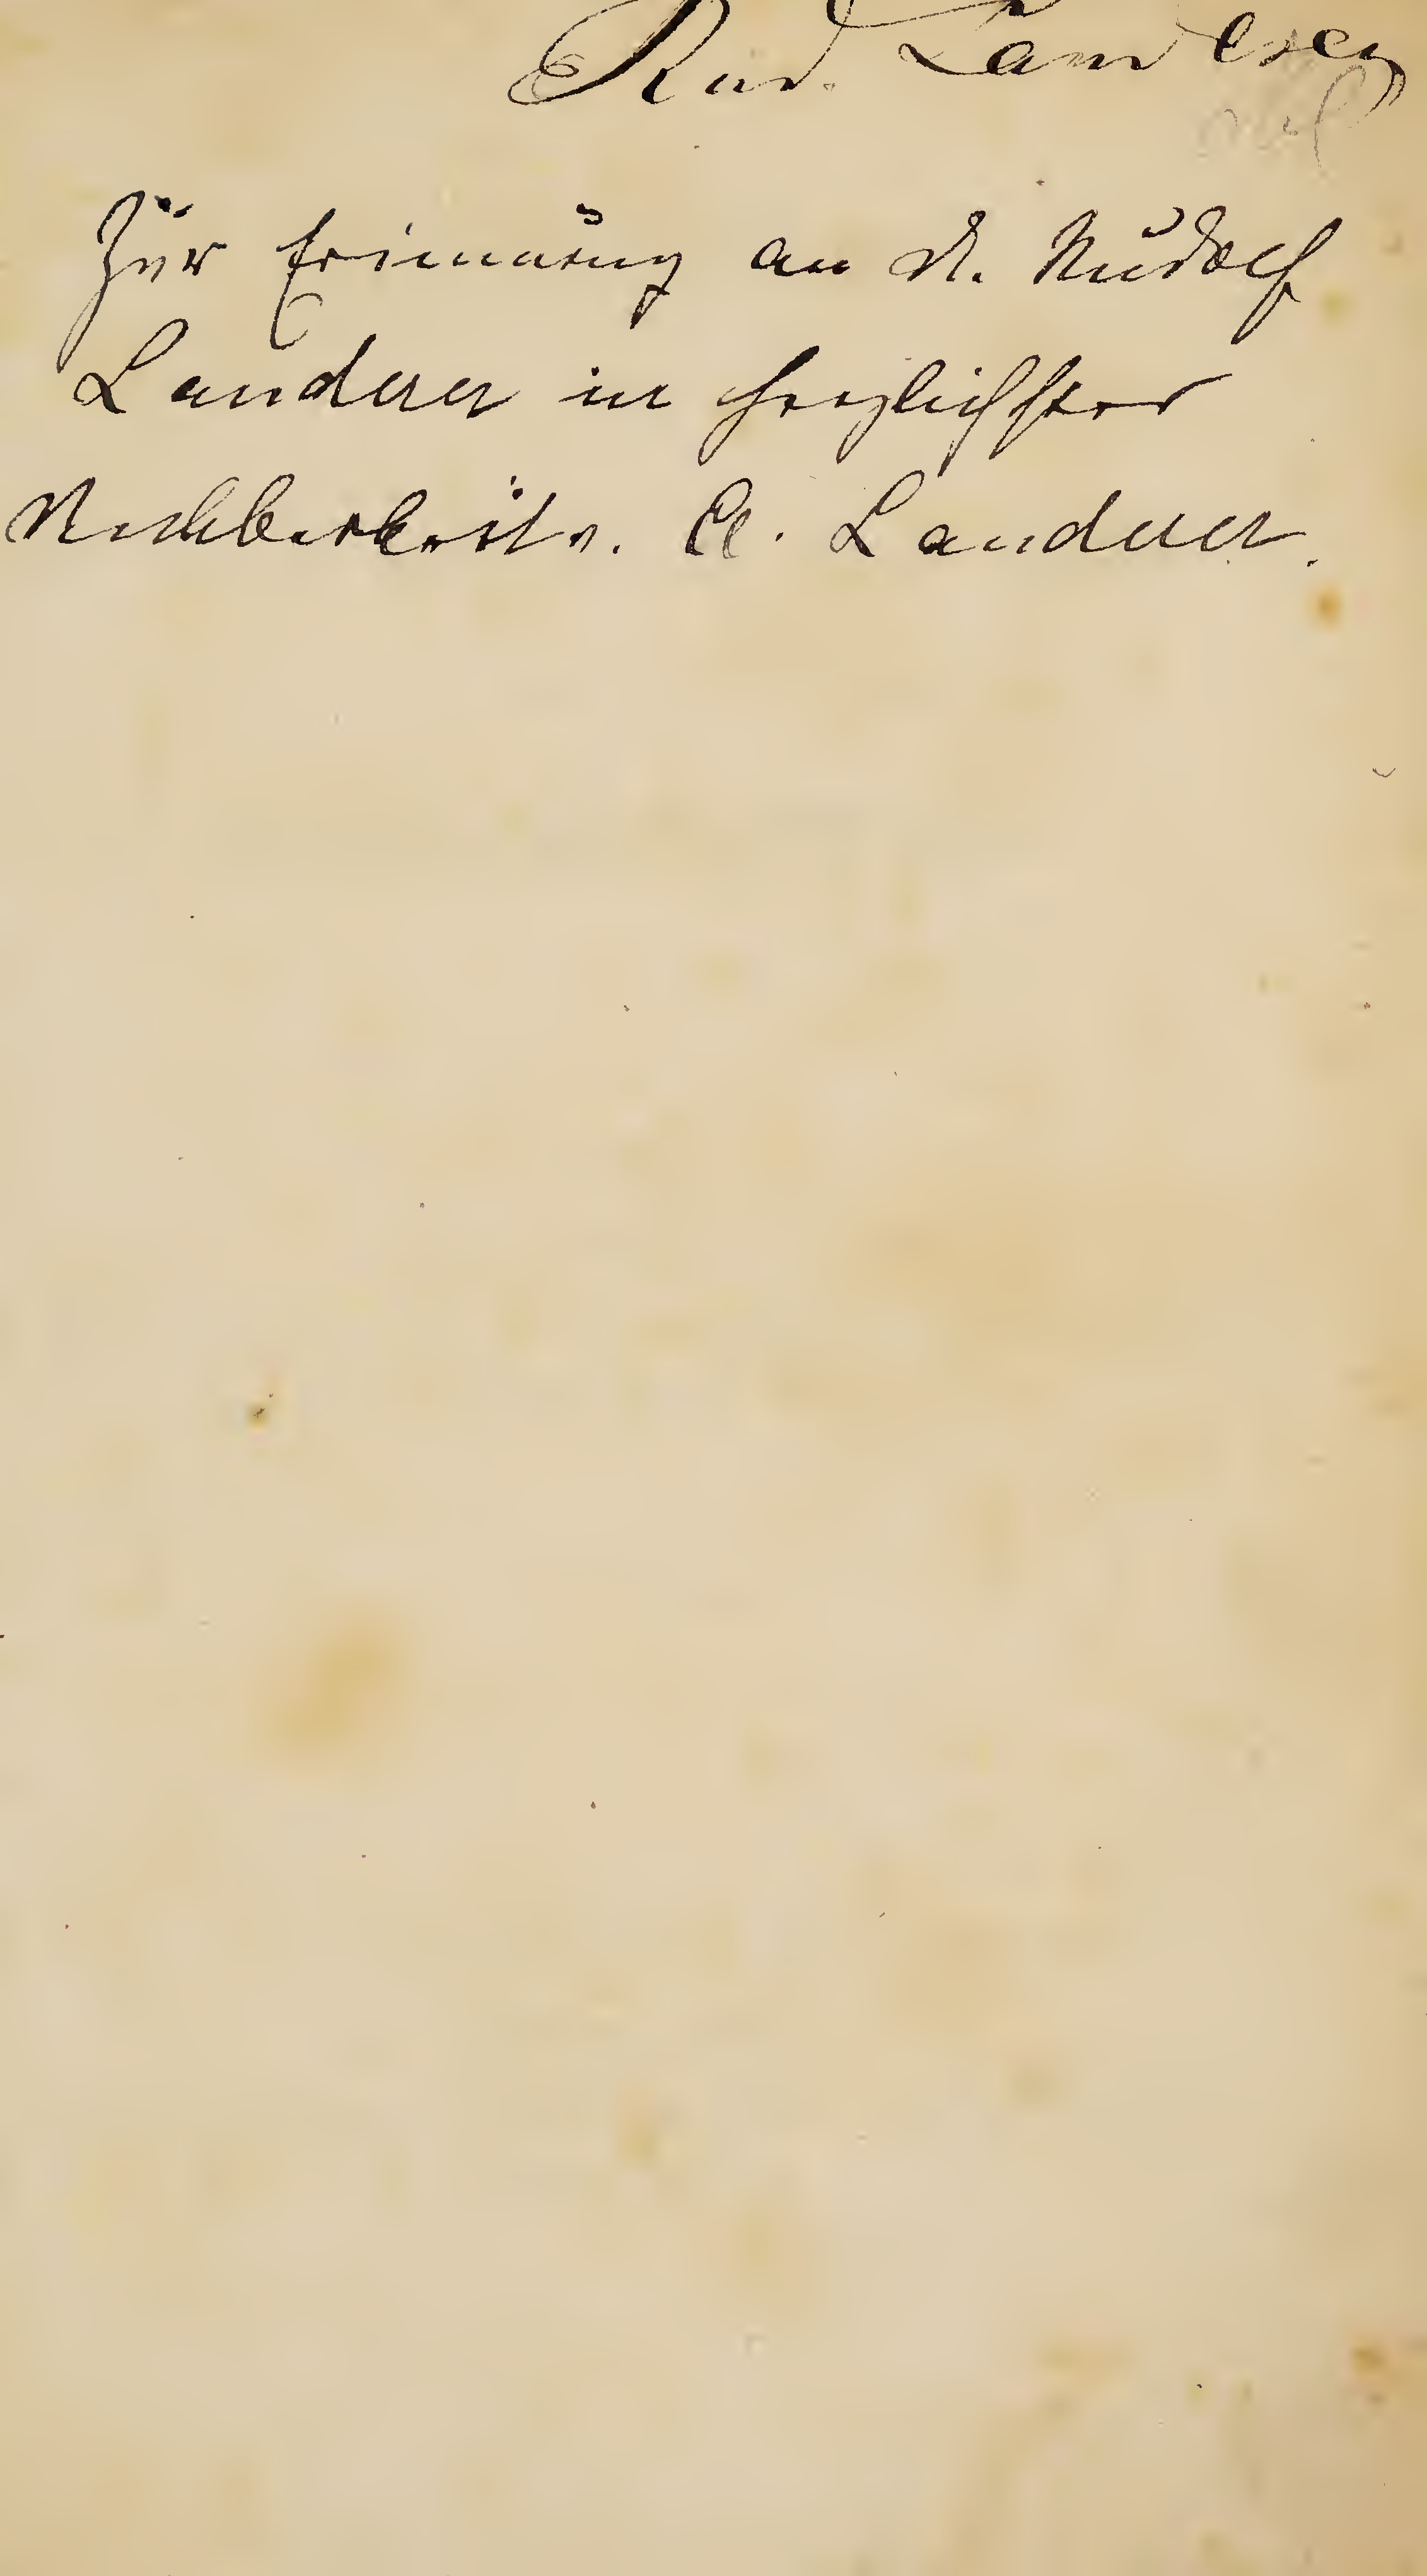 Rud. Landerer
Zur Erinnerung an D. Rudolf
Landerer in herzlichster
Dankbarkeit v. A. Landerer.